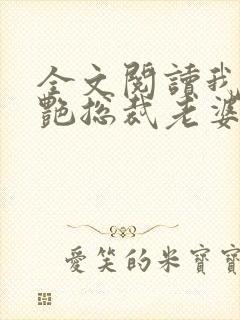 全文閱讀我
艷総裁老婆
愛笑的米寶寶